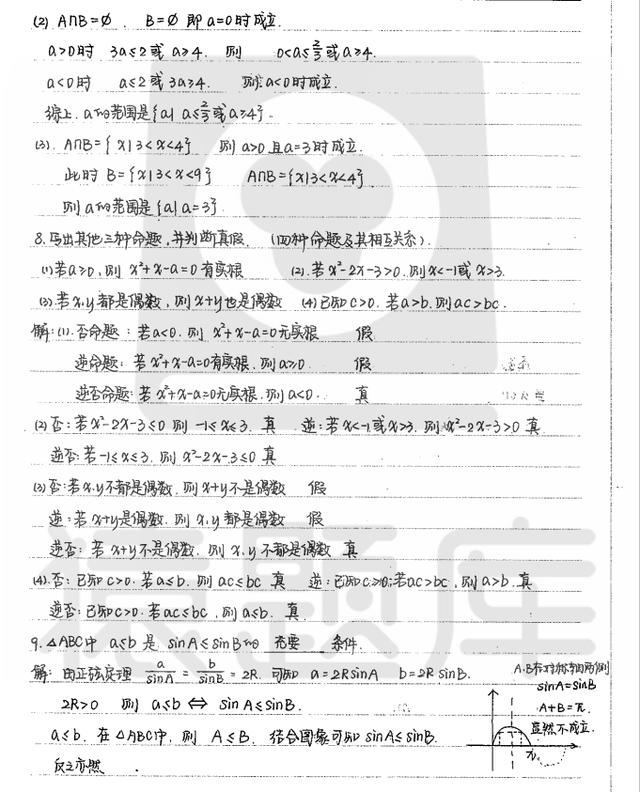 (2) A∩B=∅. B=∅ 即 a=0时成立.
a>0时 3a≤2或a≥4. 则 0<a≤2/3或a≥4.
a<0时 a≤2或3a≥4. 则a<0时成立.
综上. a的范围是{a| a≤2/3或a≥4}.
(3). A∩B={x|3<x<4} 则a>0且a=3时成立.
此时 B={x|3<x<9} A∩B={x|3<x<4}
则a的范围是{a|a=3}.
8.写出其他三种命题,并判断真假. (四种命题及其相互关系).
(1)若a≥0,则 x²+x-a=0有实根 (2).若x²-2x-3>0.则x<-1或x>3.
(3).若x,y都是偶数,则x+y也是偶数 (4)已知c>0.若a>b.则ac>bc.
解:(1).否命题:若a<0.则 x²+x-a=0无实根 假
逆命题:若x²+x-a=0有实根.则a≥0. 假
逆否命题:若x²+x-a=0无实根.则a<0. 真
(2)否:若x²-2x-3≤0则-1≤x≤3.真 逆:若x<-1或x>3.则x²-2x-3>0 真
逆否:若-1≤x≤3.则x²-2x-3≤0 真
(3)否:若x.y不都是偶数.则x+y不是偶数 假
逆:若x+y是偶数.则x,y都是偶数 假
逆否:若x+y不是偶数.则x,y不都是偶数 真
(4).否:已知c>0.若a≤b.则ac≤bc 真 逆:已知c>0;若ac>bc,则a>b.真
逆否:已知c>0.若ac≤bc,则a≤b.真
9.△ABC中 a≤b是 sinA≤sinB的 充要 条件.
解:由正弦定理 a/sinA=b/sinB=2R.可知 a=2RsinA b=2RsinB.
A.B在对称轴两侧
sinA=sinB
2R>0 则 a≤b⇔sinA≤sinB.
A+B=π.
显然不成立.
a≤b.在△ABC中,则 A≤B.结合图象可知sinA≤sinB.
π
反之亦然.